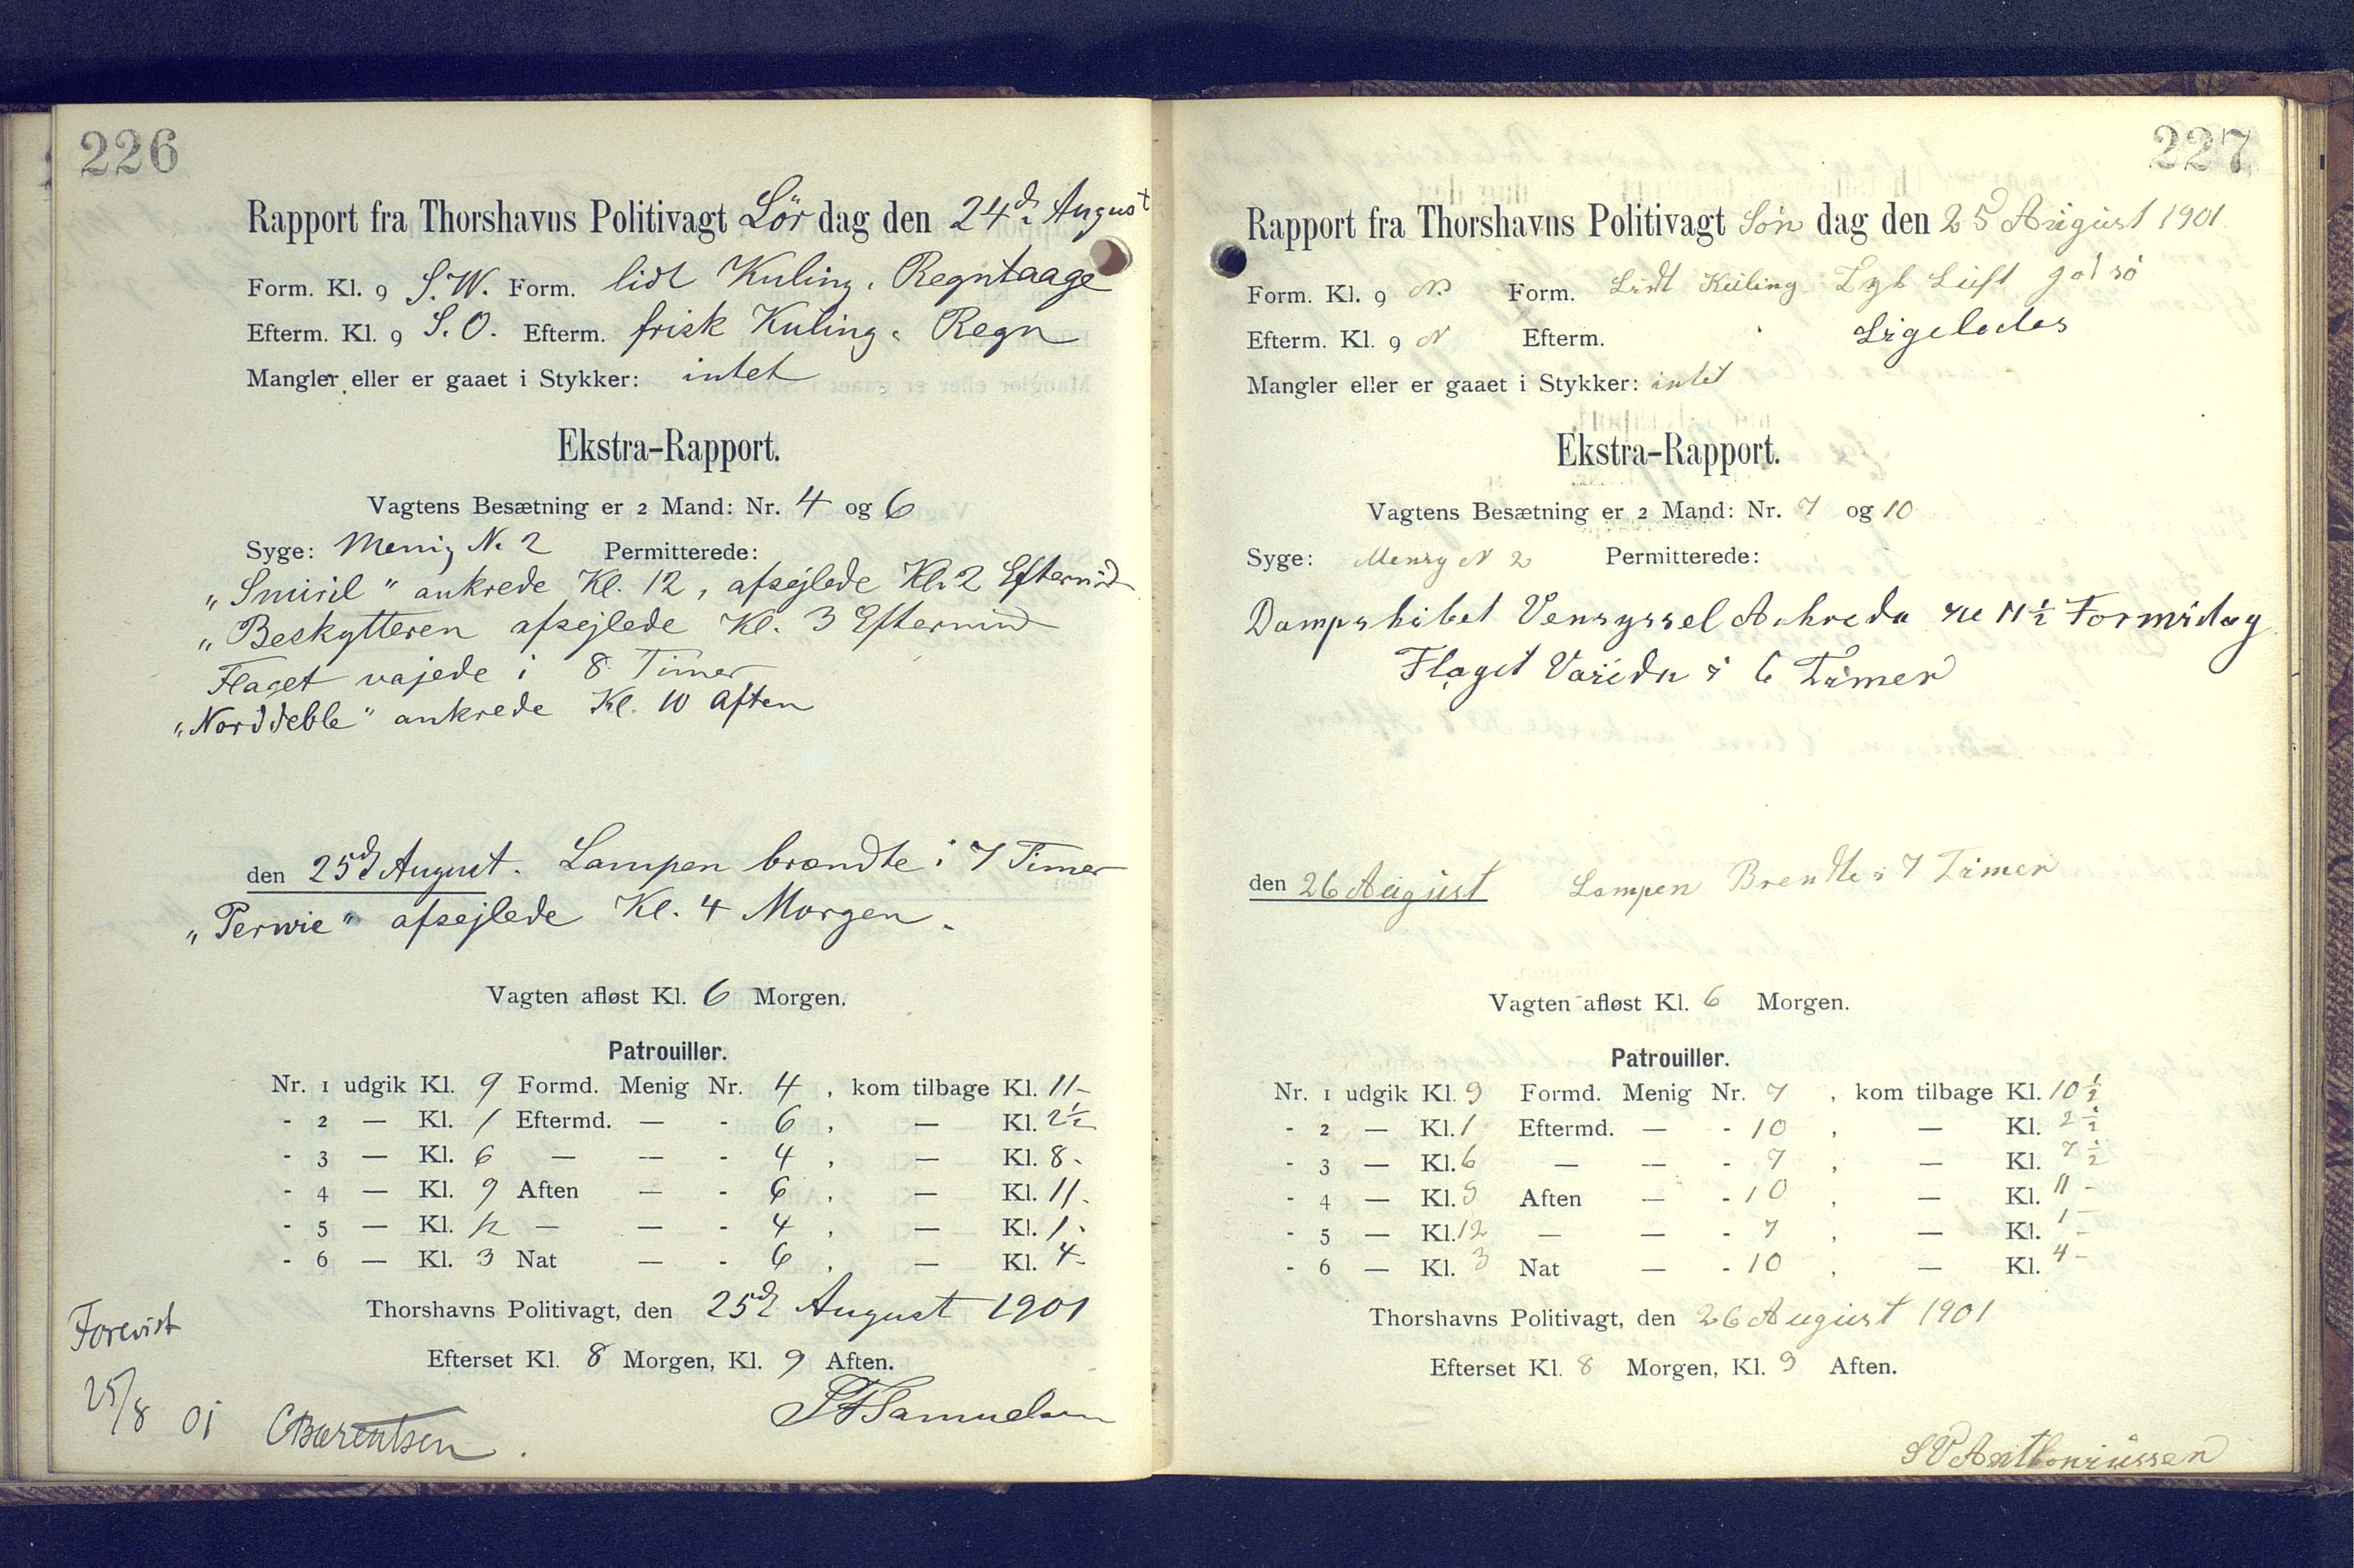 226
Rapport fra Thorshavns Politivagt Lör dag den 24d. August
Form. Kl. 9 S.W. Form. lidt Kuling. Regntaage
Efterm. Kl. 9 S.O. Efterm. frisk Kuling. Regn
Mangler eller er gaaet i Stykker: intet
Ekstra-Rapport.
Vagtens Besætning er 2 Mand: Nr. 4 og 6
Syge: Menig N. 2 Permitterede:
„Smiril" ankrede Kl. 12, afsejlede Kl. 2 Eftermid
„Beskytteren afsejlede Kl. 3 Eftermid
Flaget vajede i 8 Timer
„Norddeble" ankrede Kl. 10 Aften
den 25d August. Lampen brændte i 7 Timer
„Perwie" afsejlede Kl. 4 Morgen.
Vagten afløst Kl. 6 Morgen.
Patrouiller.
Nr. 1 udgik Kl. 9 Formd. Menig Nr. 4, kom tilbage Kl. 11-
- 2 — Kl. 1 Eftermd. — - 6, — Kl. 2½
- 3 — Kl. 6 — — - 4, — Kl. 8-
- 4 — Kl. 9 Aften — - 6, — Kl. 11-
- 5 — Kl. 12 — — - 4, — Kl. 1-
- 6 — Kl. 3 Nat — - 6, — Kl. 4-
Thorshavns Politivagt, den 25d August 1901
Efterset Kl. 8 Morgen, Kl. 9 Aften.
Samuelsen
Forevist
25/8 01 CBærentsen.
227
Rapport fra Thorshavns Politivagt Sön dag den 25 August 1901
Form. Kl. 9 N. Form. Lidt Kuling Tyk Luft
Efterm. Kl. 9 N Efterm. Ligeledes
Mangler eller er gaaet i Stykker: intet
Ekstra-Rapport.
Vagtens Besætning er 2 Mand: Nr. 7 og 10
Syge: Menig N 2 Permitterede:
Dampskibet Vensyssel Ankrede Kl 11½ Formidag
Flaget Vaiede i 6 Timer
den 26 August Lampen Brendte i 7 Timer
Vagten afløst Kl. 6 Morgen.
Patrouiller.
Nr. 1 udgik Kl. 9 Formd. Menig Nr. 7, kom tilbage Kl. 10½
- 2 — Kl. 1 Eftermd. — - 10, — Kl. 2½
- 3 — Kl. 6 — — - 7, — Kl. 7½
- 4 — Kl. 9 Aften — - 10, — Kl. 11-
- 5 — Kl. 12 — — - 7, — Kl. 1-
- 6 — Kl. 3 Nat — - 10, — Kl. 4-
Thorshavns Politivagt, den 26 August 1901
Efterset Kl. 8 Morgen, Kl. 9 Aften.
SP Anthoniussen